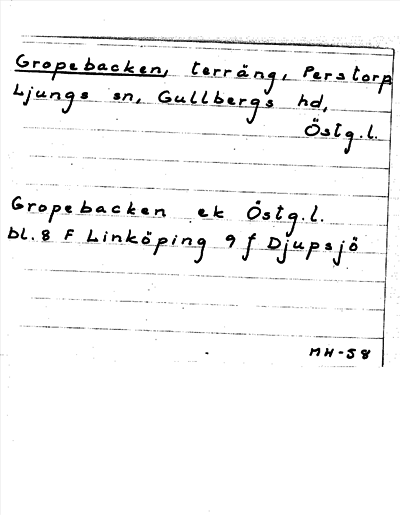 Gropebacken, terräng, Perstorp
Ljungs sn, Gullbergs hd,
Östg.l.
Gropebacken ek Östg.l.
bl. 8 F Linköping 9 f Djupsjö
MH-58